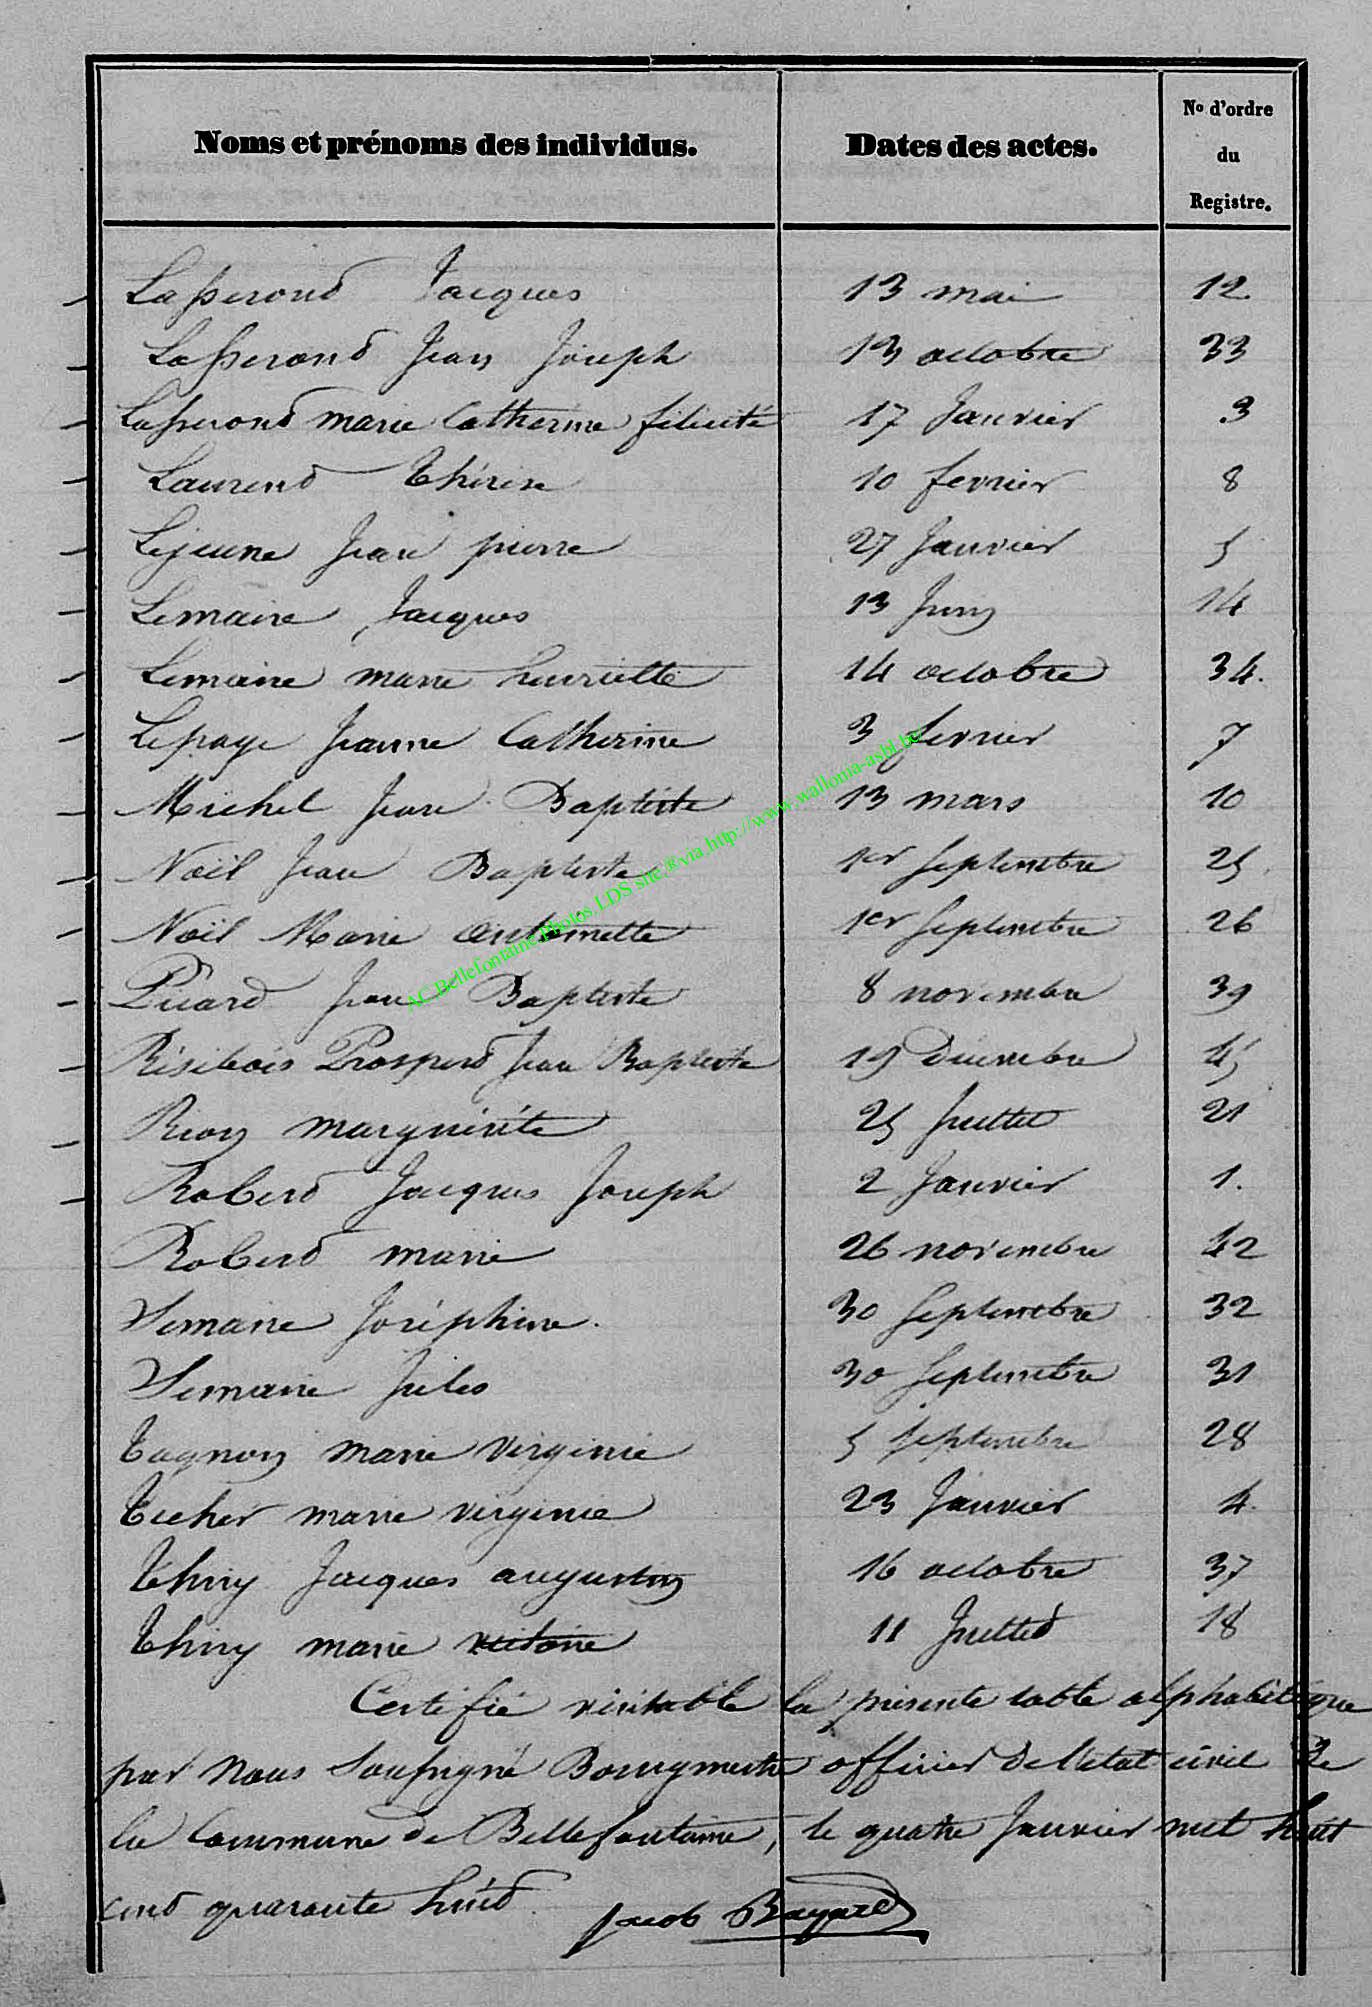 Noms et prénoms des individus. Dates des actes. No d'ordre
du
Registre.
Lasserond Jacques 13 mai 12.
Lasserond Jean Joseph 13 octobre 33
Lasserond marie Catherine félicité 17 Janvier 3
Laurend Thérèse 10 fevrier 8
Lejeune Jean pierre 27 Janvier 5
Lemaire Jacques 13 Juin 14
Lemaire marie henriette 14 octobre 34.
Lepage Jeanne Catherine 3 fevrier 7
Michel Jean Baptiste 13 mars 10
Noël Jean Baptiste 1er Septembre 25
Noël Marie antoinette 1er Septembre 26
Picard Jean Baptiste 8 novembre 39
Résibois Prosperd Jean Baptiste 19 Décembre 45
Rion marguérite 25 Juillet 21
Roberd Jacques Joseph 2 Janvier 1.
Roberd marie 26 novembre 42
Semaire Joséphine. 30 Septembre 32
Semaire Jules 30 Septembre 31
Tagnon marie virginie 5 Septembre 28
Techer marie virginie 23 Janvier 4.
Thiry Jacques augustin 16 octobre 37
Thiry marie victoire 11 Juilled 18
Certifié véritable la présente table alphabétique
par nous Soussigné Bourgmestre officier de l'état civil de
la Commune de Bellefontaine, le quatre Janvier mil huit
cend quarante huid.
Jacob Bayard
AC.Bellefontaine.Photos.LDS site.®via.http://www.wallonia-asbl.be/